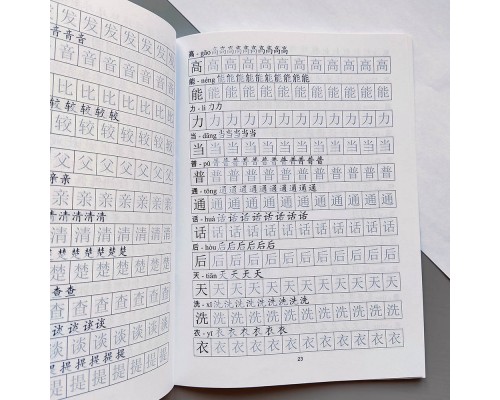 发发发发发
音音音
音音音音音
比比比比比
较较较较较
较较较较较
父父父父父
亲亲
亲亲亲亲亲
清清清清清
清清清清清
楚楚楚楚楚
楚楚楚楚楚
查查
查查查查查
谈谈谈谈
谈谈谈谈谈
提提提提提
提提提提提
高 - gāo 高高高高高高高高高高
高高高高高高高高高
能 - néng 能能能能能能能能能能
能能能能能能能能能
力 - lì 力力
力力力力力力力力力
当 - dāng 当当当当当
当当当当当当当当当
普 - pǔ 普普普普普普普普普普
普普普普普普普普普
通 - tōng 通通通通通通通通通
通通通通通通通通通
话 - huà 话话话话话话话话
话话话话话话话话话
后 - hòu 后后后后后后
后后后后后后后后后
天 - tiān 天天天天
天天天天天天天天天
洗 - xǐ 洗洗洗洗洗洗洗洗洗
洗洗洗洗洗洗洗洗洗
衣 - yī 衣衣衣衣衣衣
衣衣衣衣衣衣衣衣衣
23